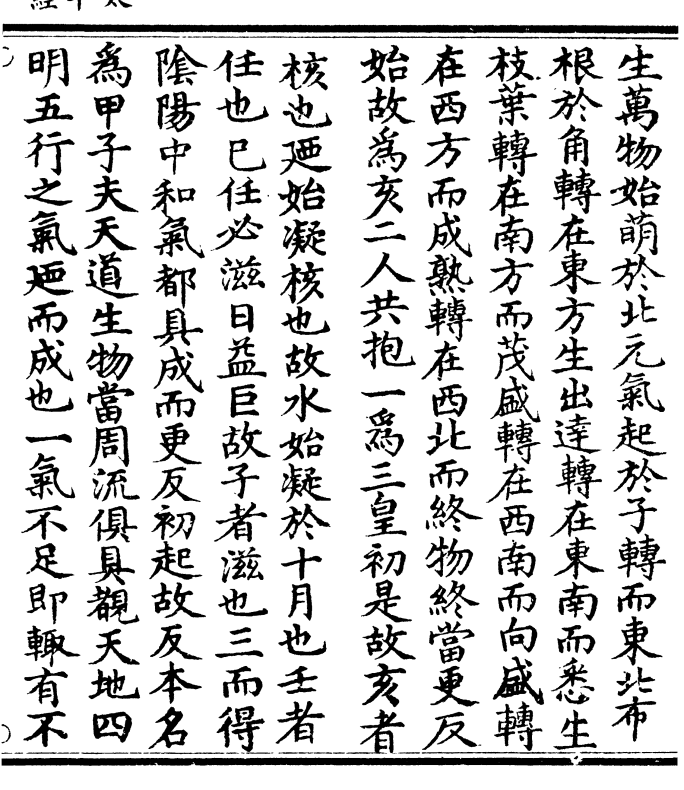 生萬物始萌於北元氣起於子轉而東北布
根於角轉在東方生出達轉在東南而悉生
枝葉轉在南方而茂盛轉在西南而向盛轉
在西方而成熟轉在西北而終物終當更反
始故爲亥二人共抱一爲三皇初是故亥者
核也廼始凝核也故水始凝於十月也壬者
任也巳任必滋日益巨故子者滋也三而得
陰陽中和氣都具成而更反初起故反本名
爲甲子夫天道生物當周流俱具覩天地四
明五行之氣廼而成也一氣不足即輙有不